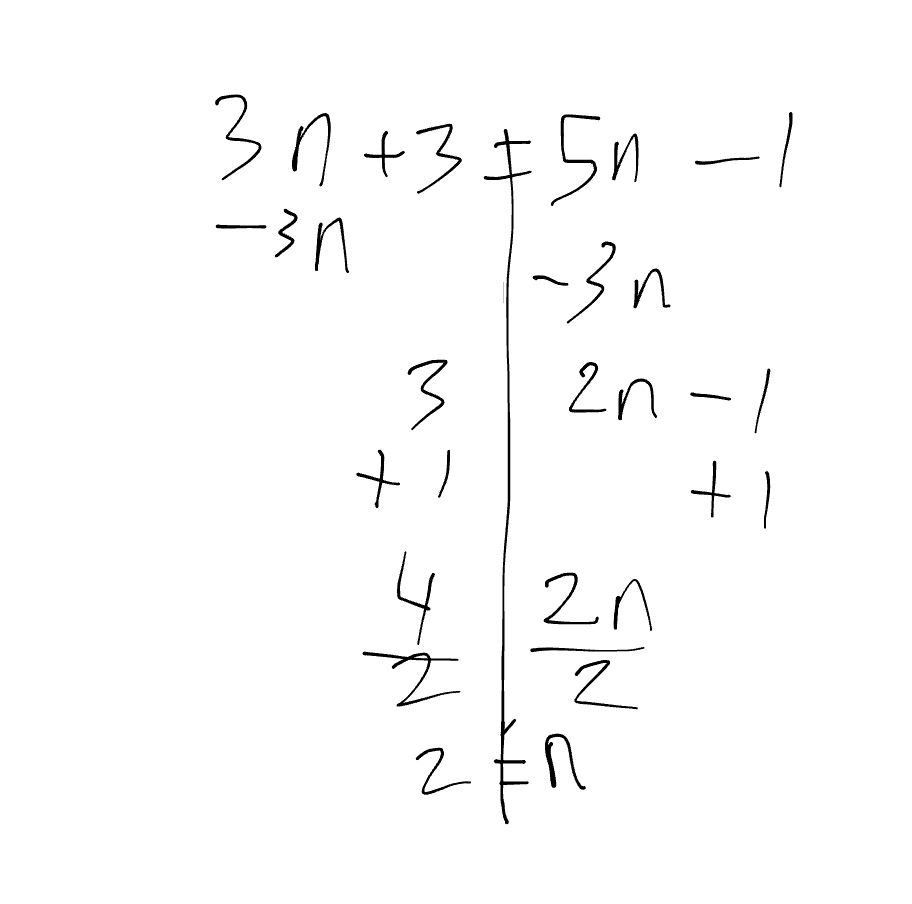 3n + 3 = 5n - 1
-3n
-3n
3 2n - 1
+ 1 + 1
4 2n
2 2
2 = n